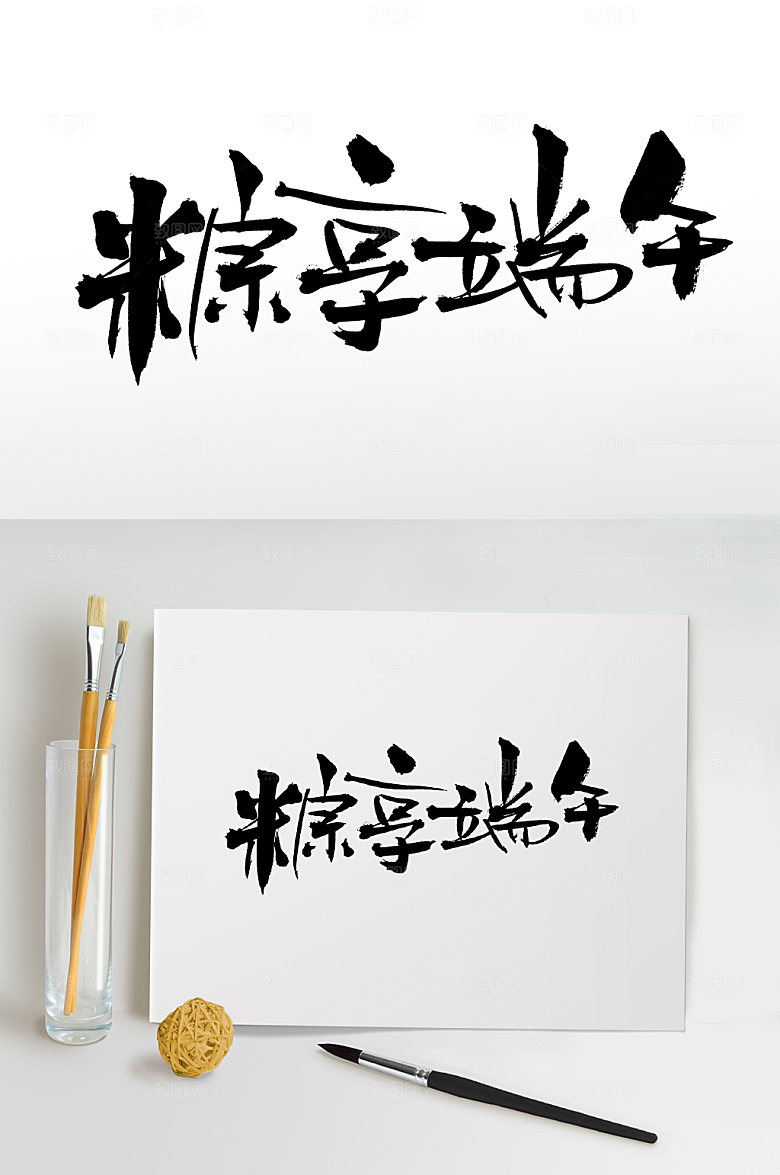 粽享端午
粽享端午